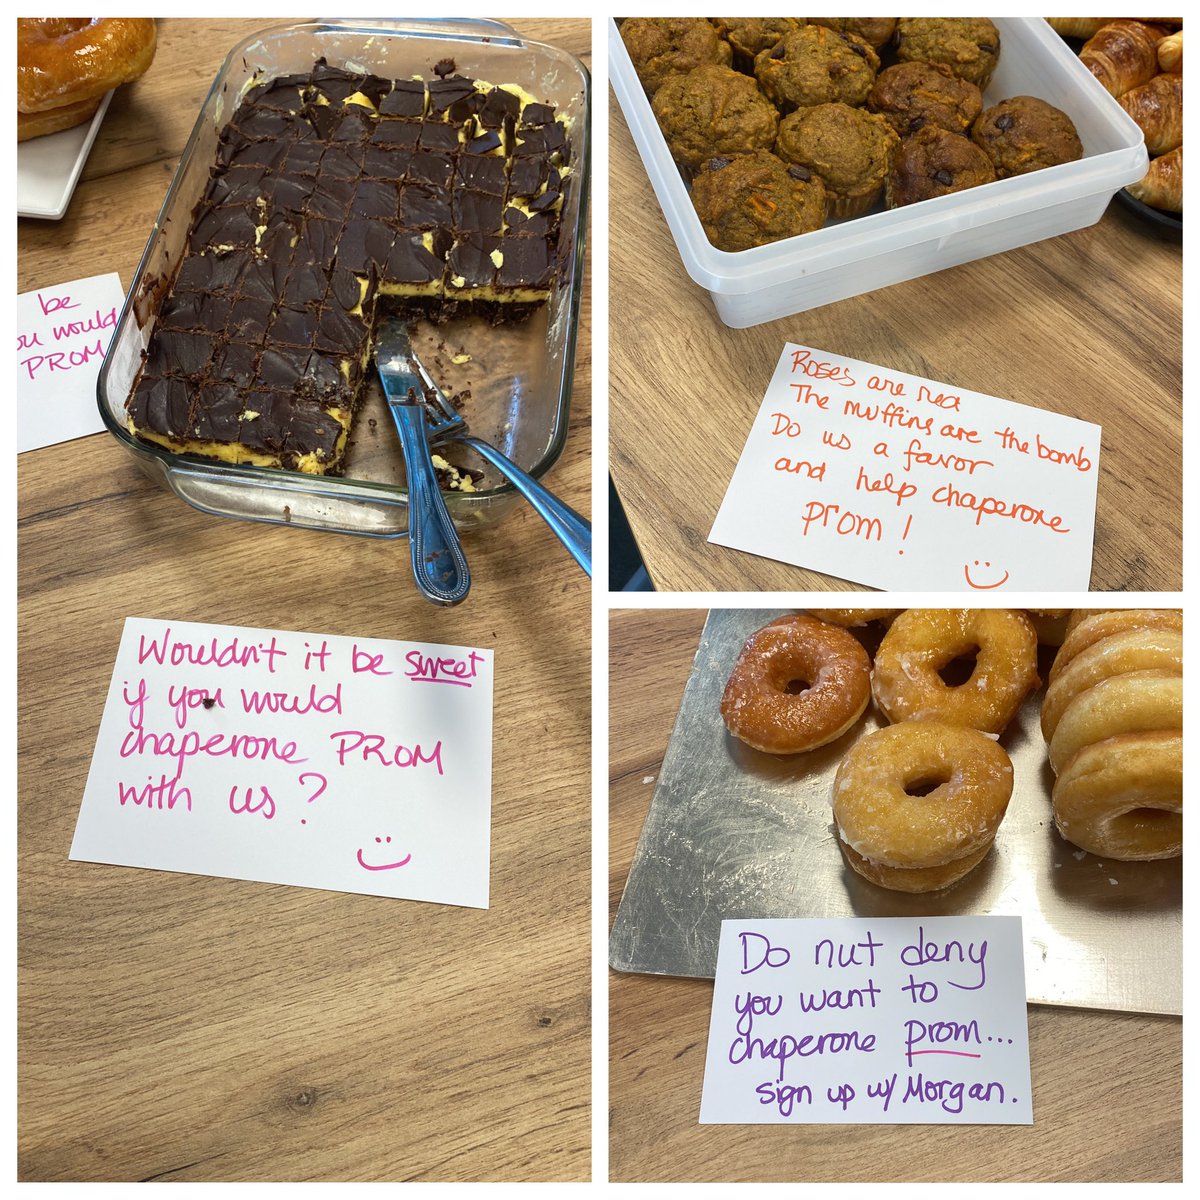 be
ou would
PROM
Wouldn't it be sweet
if you would
chaperone PROM
with us?
Roses are red
The muffins are the bomb
Do us a favor
and help chaperone
prom!
Do nut deny
you want to
chaperone prom...
sign up w/ Morgan.